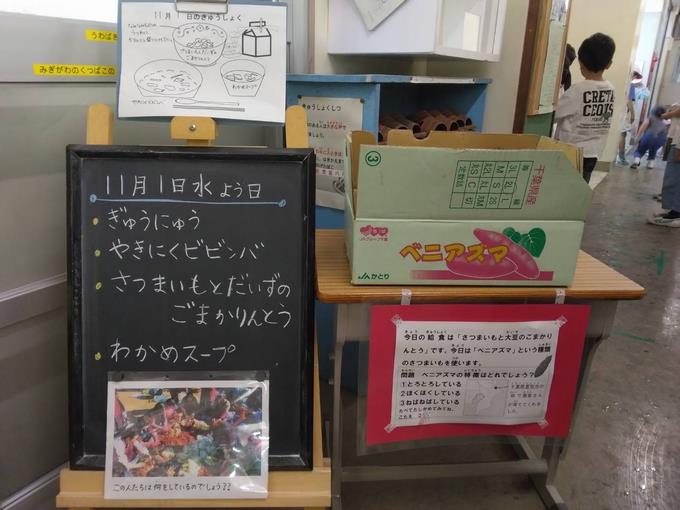 11月1日のきゅうしょく
さつまいもとだいずの
ごまかりんとう
わかめスープ
うわばき
みぎがわのくつばこの
きゅうしょくしつ
11月1日水よう日
ぎゅうにゅう
やきにくビビンバ
さつまいもとだいずの
ごまかりんとう
わかめスープ
この人たちは何をしているのでしょう??
③
千葉県産
3L 2L L
M S 2S
JAグループ千葉
ベニアズマ
JAかとり
今日の給食は「さつまいもと大豆のごまかり
んとう」です。今日は「ベニアズマ」という種類
のさつまいもを使います。
問題 ベニアズマの特徴はどれでしょう?
1とろとろしている
2ほくほくしている
3ねばねばしている
たべてたしかめてみてね。
CRETE